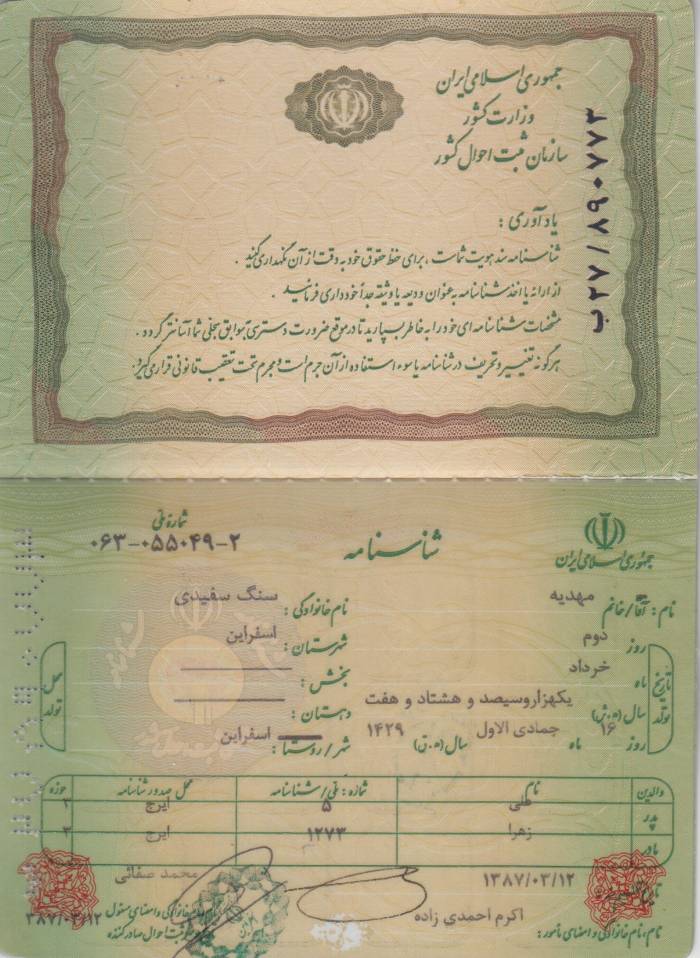 جمهوری اسلامی ایران
وزارت کشور
سازمان ثبت احوال کشور
ب۲۷/۸۹۰۷۷۳
یادآوری :
شناسنامه سند هویت شماست ، برای حفظ حقوق خود به دقت از آن نگهداری کنید .
از ارائه یا اخذ شناسنامه به عنوان ودیعه یا وثیقه جداً خودداری فرمائید .
مشخصات شناسنامه ای خود را به خاطر بسپارید تا در موقع ضرورت دسترسی به سوابق سجلی شما آسانتر گردد .
هرگونه تغییر و تحریف در شناسنامه یا سوء استفاده از آن جرم است و مجرم تحت تعقیب قانونی قرار می گیرد.
جمهوری اسلامی ایران
شناسنامه
شماره ملی
۰۶۳-۰۵۵۰۴۹-۲
نام : آقا/خانم مهدیه
نام خانوادگی : سنگ سفیدی
تاریخ تولد
روز دوم
ماه خرداد
سال(ه.ش) یکهزاروسیصد و هشتاد و هفت
روز ۱۶ ماه جمادی الاول سال(ه.ق) ۱۴۲۹
محل تولد
شهرستان : اسفراین
بخش :
دهستان :
شهر/روستا : اسفراین
والدین نام شماره : ملی/شناسنامه محل صدور شناسنامه حوزه
پدر علی ۵ ایرج ۲
مادر زهرا ۱۲۷۳ ایرج ۲
۱۳۸۷/۰۳/۱۲
محمد صفائی
اکرم احمدی زاده
نام، نام خانوادگی و امضای مأمور :
نام، نام خانوادگی و امضای مسئول
ثبت احوال صادرکننده
۱۳۸۷/۰۳/۱۲